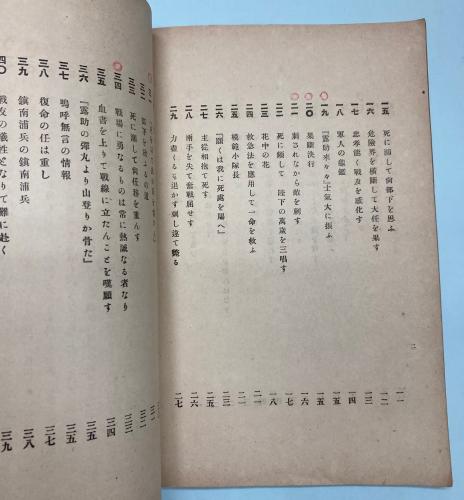 一五 死に瀕して尚部下を思ふ 一一
一六 危險界を橫斷して大任を果す 一二
一七 忠孝能く戰友を感化す 一三
一八 軍人の龜鑑 一四
一九 『露助來々々』士氣大に振ふ 一五
二〇 果斷決行 一五
二一 刺されながら敵を刺す 一七
二二 死に瀕して 陛下の萬歲を三唱す 一七
二三 花中の花 一八
二四 救急法を應用して一命を救ふ 二一
二五 模範小隊長 二一
二六 『願くは我に死處を賜へ』 二三
二七 主從相抱て死す 二五
二八 兩手を失て奮戰屈せず 二六
二九 力盡くるも退かず刺し違て斃る 二七
死に瀕して尙任務を重んす
三四 戰場に勇なるものは常に熱誠なる者なり 三四
三五 血書を上りて戰線に立たんことを嘆願す 三五
三六 『露助の彈丸より山登りか骨た』 三五
三七 嗚呼無言の情報 三七
三八 復命の任は重し 三八
三九 鎭南浦兵の鎭南浦兵 三九
四〇 戰友の犧牲となりて難に赴く
二